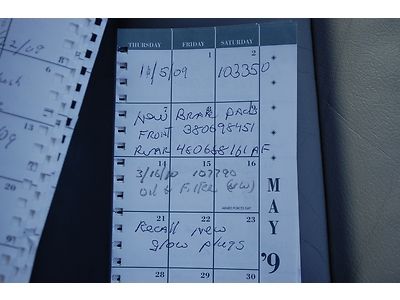 2/09
THURSDAY FRIDAY SATURDAY
1 2
11/5/09 103350
7 8 9
New BRAK PADS
FRONT 380698451
REAR 480668161 AF
14 15 16
3/16/10 107790
Oil & Filter (VW)
ARMED FORCES DAY
21 22 23
Recall new
glow plugs
28 29 30
MAY
'9
6
13
20